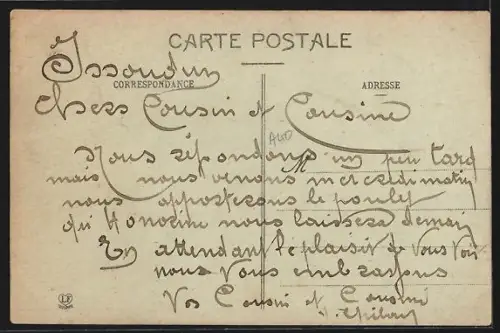 CARTE POSTALE
Issoudun
CORRESPONDANCE
ADRESSE
Chers Cousin et Cousine
Nous répondons un peu tard
mais nous venons mercredi matin
nous apporterons le poulet
qu'Honorine nous laissera demain
En attendant le plaisir de vous voir
nous vous embrassons
Vos Cousin et Cousine